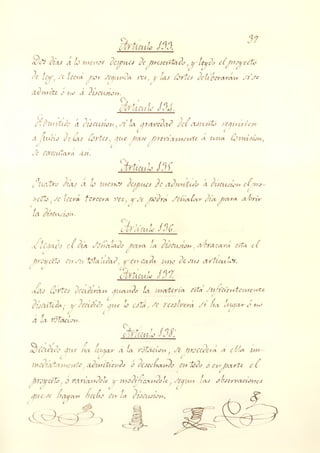 37
Articulo 133.
Dos dias á lo menos despues de presentado, y leydo el proyecto
de ley, se leerá por segunda vez, y las Cortes deliberarán si se
admite ó no á discusion.
Articulo 134.
Admitido á discusion, si la gravedad del asunto requiriese
a juicio de las Cortes, que pase previamente á una Comision,
se executará asi.
Articulo 135.
Quatro dias á lo menos despues de admitido á discusion el pro-
yecto, se leerá tercera vez, y se podrá señalar dia para abrir
la discusion.
Articulo 136.
Llegado el dia señalado para la discusion, abrazará esta el
proyecto en su totalidad, y en cada uno de sus articulos.
Articulo 137.
Las Cortes decidirán quando la materia está suficientemente
discutida; y decidido que lo está, se resolverá si há lugar ó no
á la votacion.
Articulo 138.
Decidido que ha lugar á la votacion, se procederá á ella im-
mediatamente, admitiendo ó desechando en todo ó en parte el
proyecto, ó variandole y modificandole, segun las observaciones
que se hayan hecho en la discusion.